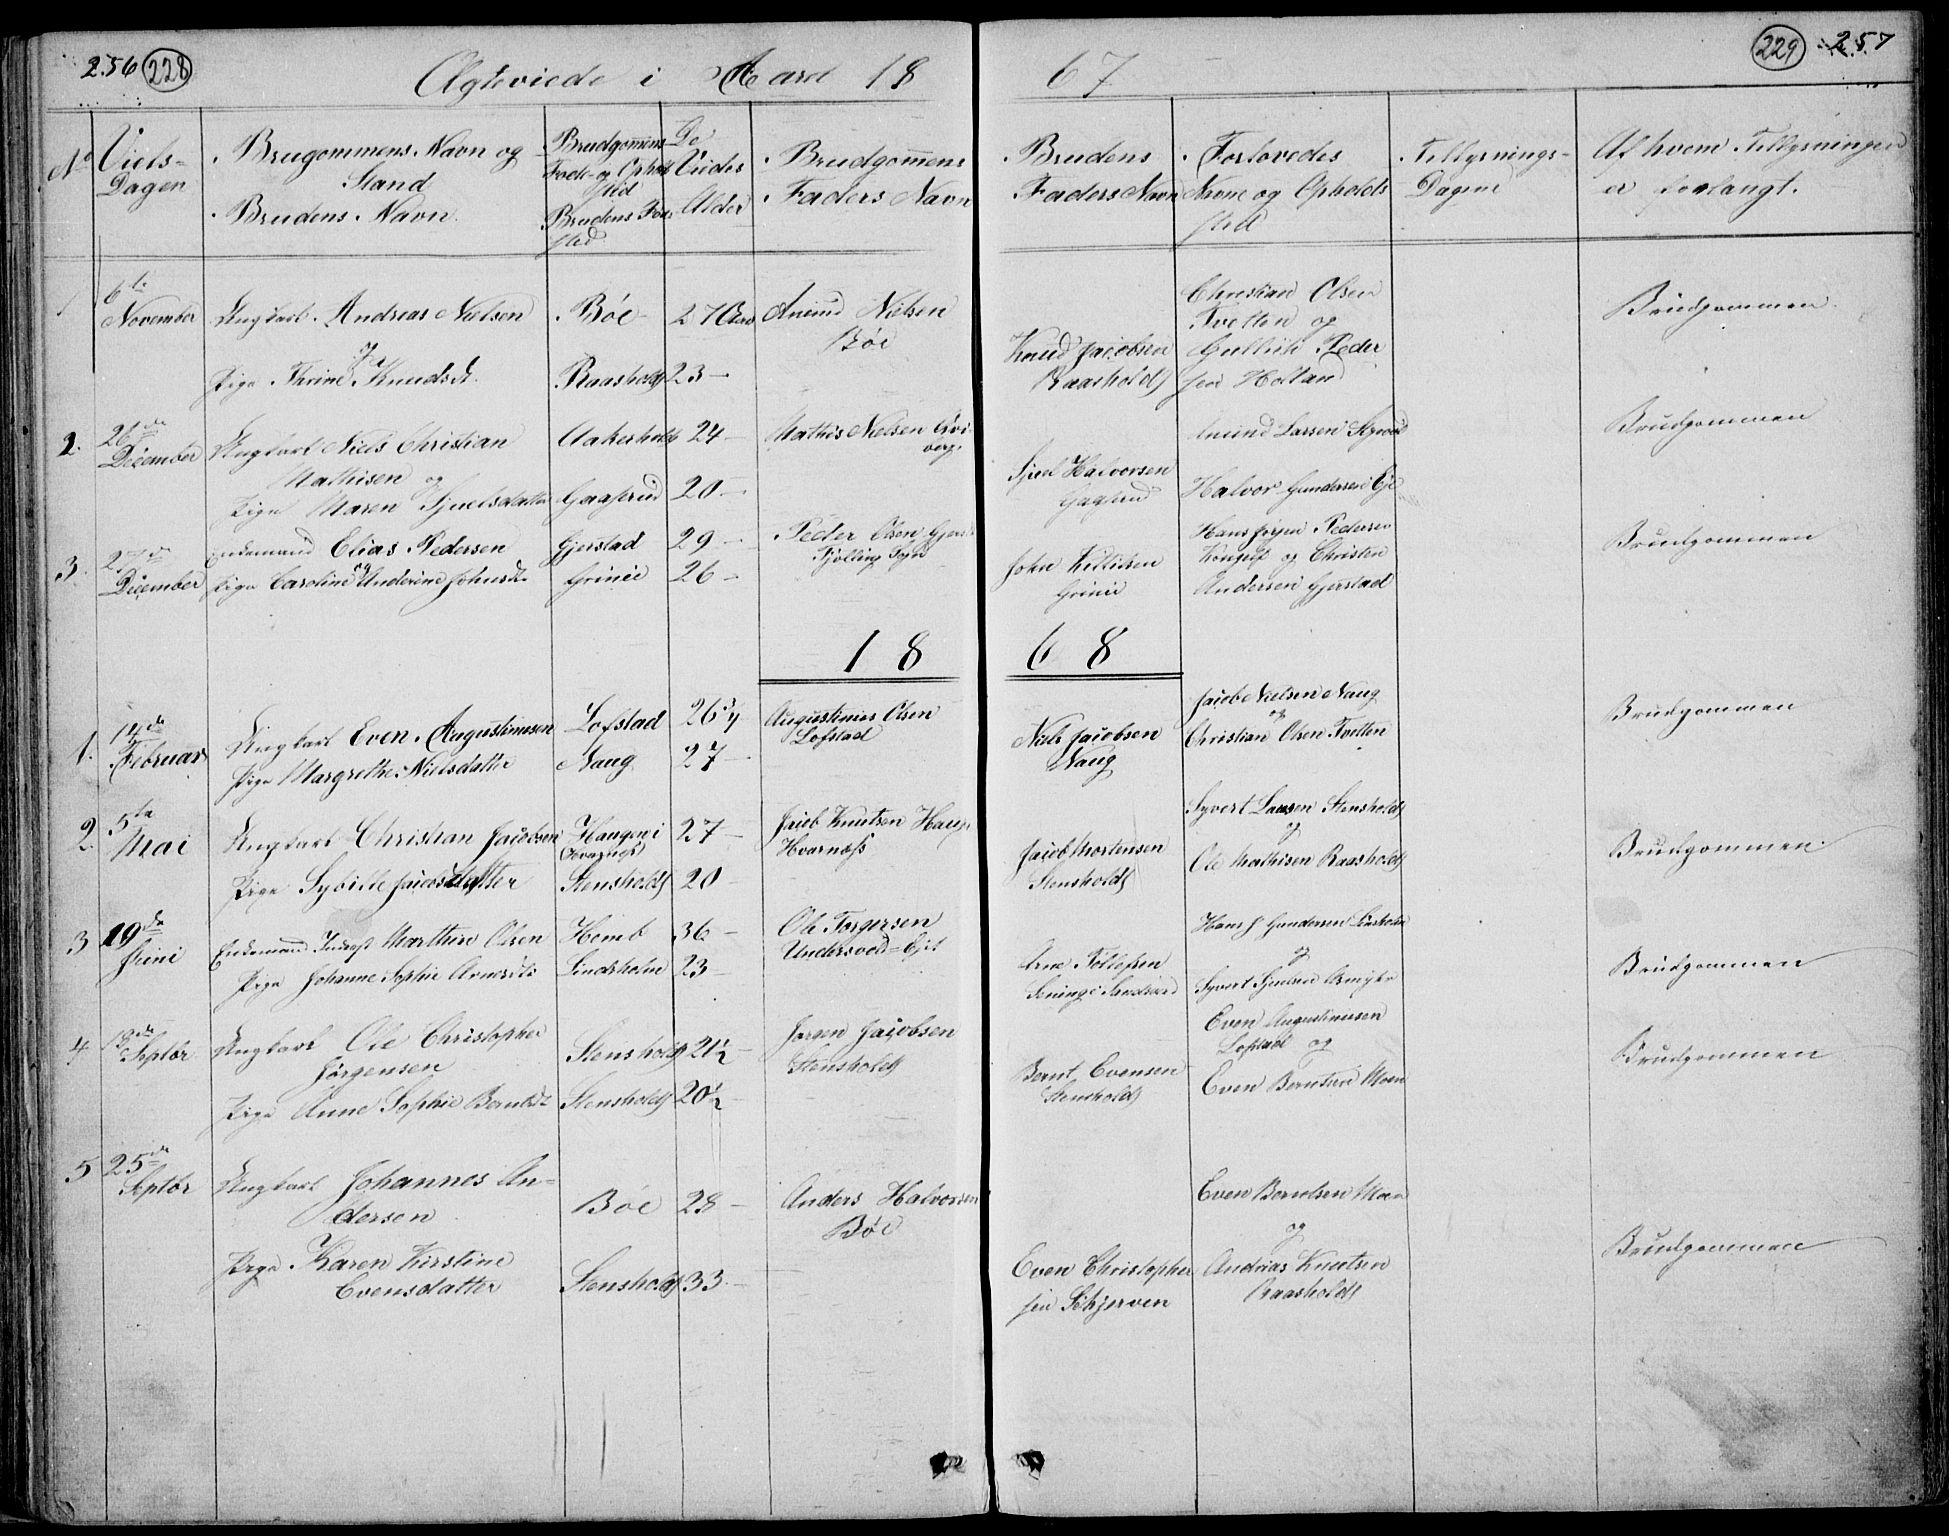 256 228
229 257
Ægteviede i Aaret 18 67
No
Viels-
Dagen
Brugommens Navn og
Stand
Brudens Navn.
Brudgom̄ens
Føde- og Opholds
sted
Brudens Føde
sted
De
Viedes
Alder
Brudgom̄ens
Faders Navn
Brudens
Faders Navn
Forlovedes
Navne og Opholds
sted
Tillysnings-
Dagene
Af hvem Tillysningen
er forlangt.
1 6te
November
Ungkarl Andreas Nielsen
og
Pige Thrine Knudsdt.
Bøe
Raasholdt
27 Aar
23 —
Anund Nielsen
Bøe
Knud Jacobsen
Raasholdt
Christian Olsen
Tvetten og
Gullich Peder
sen Holtan
Brudgommen
2. 26de
December
Ungkarl Niels Christian
Mathisen og
Pige Maren Sjuelsdatter
Aakerholt
Gaaserud
24 —
20 —
Mathis Nielsen
Sjuel Halvorsen
Gaaserud
Anund Larsen
Halvor Gundersen Eje
Brudgommen
3. 27de
December
Enkemand Elias Pedersen
og
Pige Caroline Andrine Johnsdt.
Gjerstad
Grinie
29 —
26 —
Peder Olsen Gjerstad
Tjølling Sogn
John Killiksen
Grinie
Hans Jørgen Pedersen
og Christen
Andersen Gjerstad
Brudgommen
18 68
1. 14de
Februar
Ungkarl Even Augustinusen
Pige Margrethe Nielsdatter
Lofstad
Naug
26¾
27 —
Augustinius Olsen
Lofstad
Niels Jacobsen
Naug
Jacob Nielsen Naug
og
Christian Olsen Tvetten
Brudgommen
2. 5te
Mai
Ungkarl Christian Jacobsen
Pige Sybille Jacobsdatter
Haugen i
Hvarnæs
Stensholdt
27 —
20 —
Jacob Knutsen Haugen
Hvarnæss
Jacob Mortensen
Stensholdt
Syvert Larsen Stensholdt
og
Ole Mathisen Raasholdt
Brudgommen.
3 19de
Juni
Enkemand Marthin Olsen
Pige Johanne Sophie Arnesdt.
Hemb
Lindsholm
36 —
23 —
Ole Torgersen
Undersoed-Eje
Arne Tollefsen
Hans J Gundersen
og
Syvert Sjuelsen
Brudgommen
4 18de
Septbr
Ungkarl Ole Christopher
Jørgensen
Pige Anne Sophie Berntsdt.
Stensholdt
Stensholdt
21½ —
20½ —
Jørgen Jacobsen
Stensholdt
Bernt Evensen
Stensholdt
Even Augustinusen
Lofstad og
Even Berntsen Moen
Brudgommen
5 25de
Septbr
Ungkarl Johannes An-
dersen
Pige Karen Kirstine
Evensdatter
Bøe
Stensholdt
28 —
33 —
Anders Halvorsen
Bøe
Even Christopher
sen Schjerven
Even Berntsen Moen
og
Andreas Knutsen
Raasholdt
Brudgommen